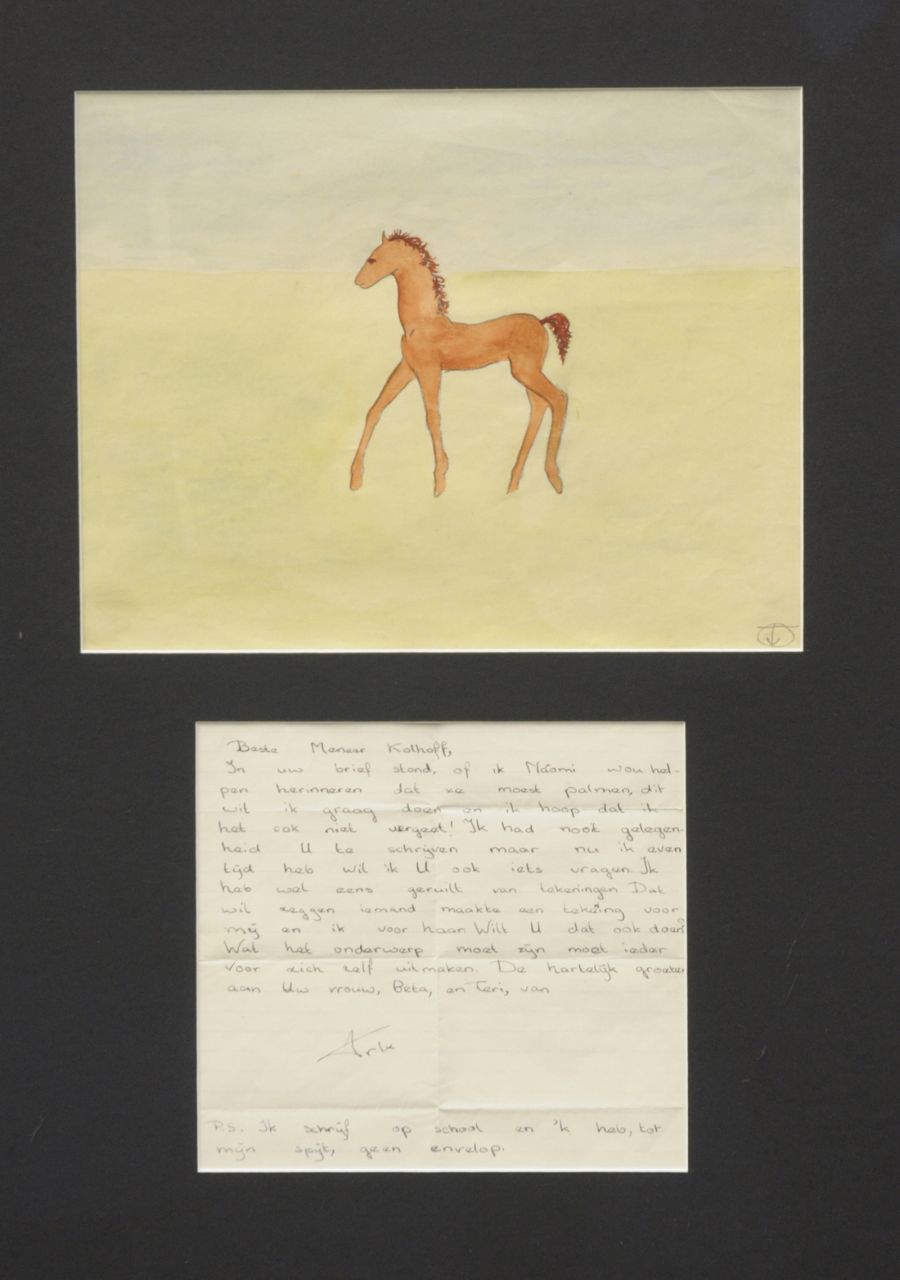 Beste Meneer Kolhoff,
In uw brief stond, of ik Náomi wou hel-
pen herinneren dat ze moest palmen, dit
wil ik graag doen en ik hoop dat ik
het ook niet vergeet! Ik had nooit gelegen-
heid U te schrijven maar nu ik even
tijd heb wil ik U ook iets vragen. Ik
heb wel eens geruilt van tekeningen Dat
wil zeggen iemand maakte een tekening voor
mij en ik voor haar Wilt U dat ook doen?
Wat het onderwerp moet zijn moet ieder
voor zich zelf uitmaken. De hartelijk groeten
aan Uw vrouw, Beta, en Teri, van
P.S. Ik schrijf op school en 'k heb, tot
mijn spijt, geen envelop.